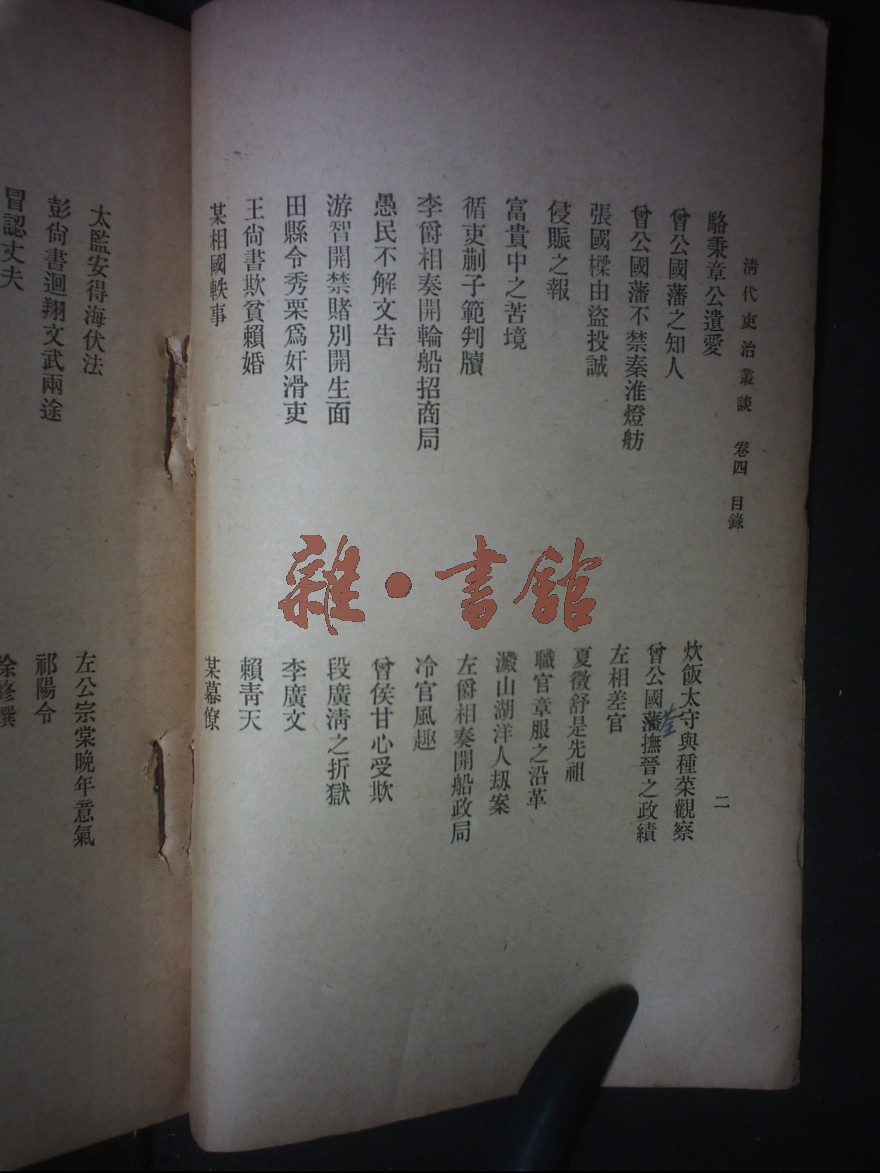 清代吏治叢談　卷四　目錄　二
駱秉章公遺愛
曾公國藩之知人
曾公國藩不禁秦淮燈舫
張國樑由盜投誠
侵賑之報
富貴中之苦境
循吏蒯子範判牘
李爵相奏開輪船招商局
愚民不解文告
游智開禁賭別開生面
田縣令秀栗爲奸滑吏
王尙書欺貧賴婚
某相國軼事
炊飯太守與種菜觀察
曾公國藩撫晉之政績
荃
左相差官
夏徵舒是先祖
職官章服之沿革
澱山湖洋人刼案
左爵相奏開船政局
冷官風趣
曾侯甘心受欺
段廣淸之折獄
李廣文
賴靑天
某幕僚
太監安得海伏法
彭尙書迴翔文武兩途
冒認丈夫
左公宗棠晚年意氣
祁陽令
徐修撰
雜·書館